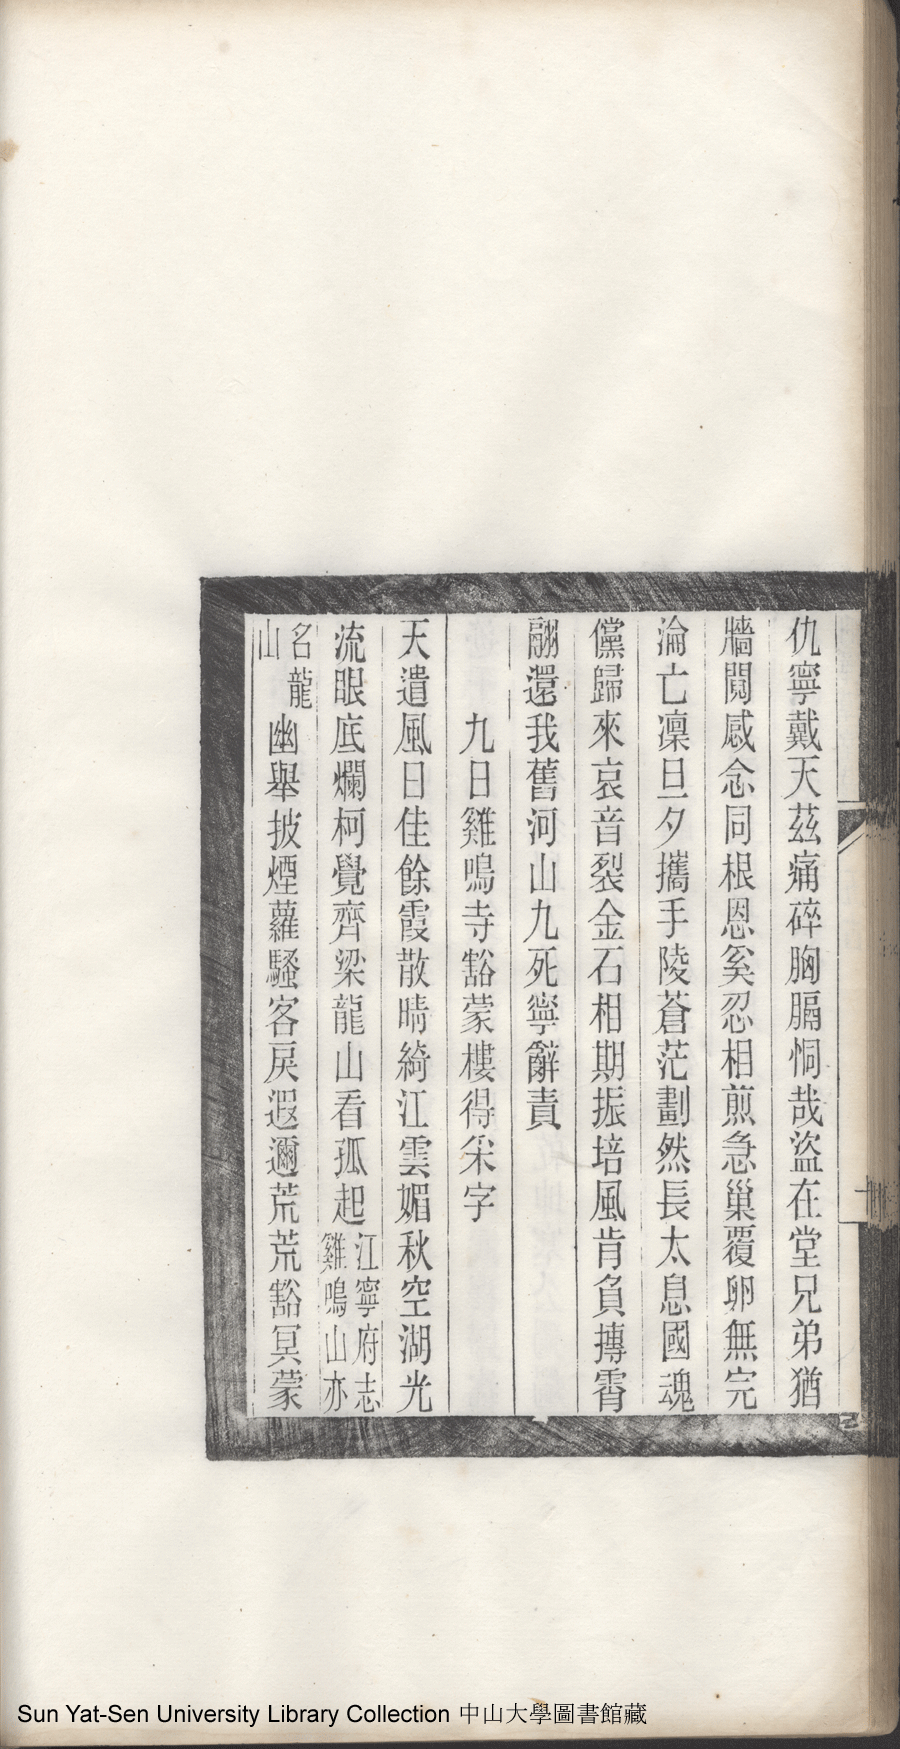 仇寧戴天茲痛碎胸膈恫哉盜在堂兄弟猶
牆鬩感念同根恩奚忍相煎急巢覆卵無完
淪亡凜旦夕攜手陵蒼茫劃然長太息國魂
儻歸來哀音裂金石相期振培風肯負摶霄
翮還我舊河山九死寧辭責
九日雞鳴寺豁蒙樓得采字
天遣風日佳餘霞散晴綺江雲媚秋空湖光
流眼底爛柯覺齊梁龍山看孤起江寧府志雞鳴山亦
名龍山幽舉披煙蘿騷客戾遐邇荒荒豁冥蒙
Sun Yat-Sen University Library Collection 中山大學圖書館藏